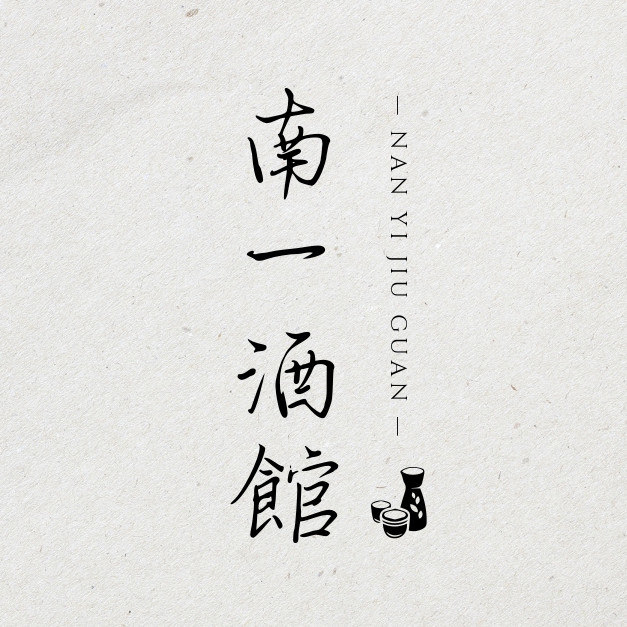 南一酒館
— NAN YI JIU GUAN —